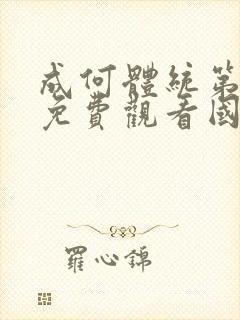 成何體統第
免費觀看國
羅心錦